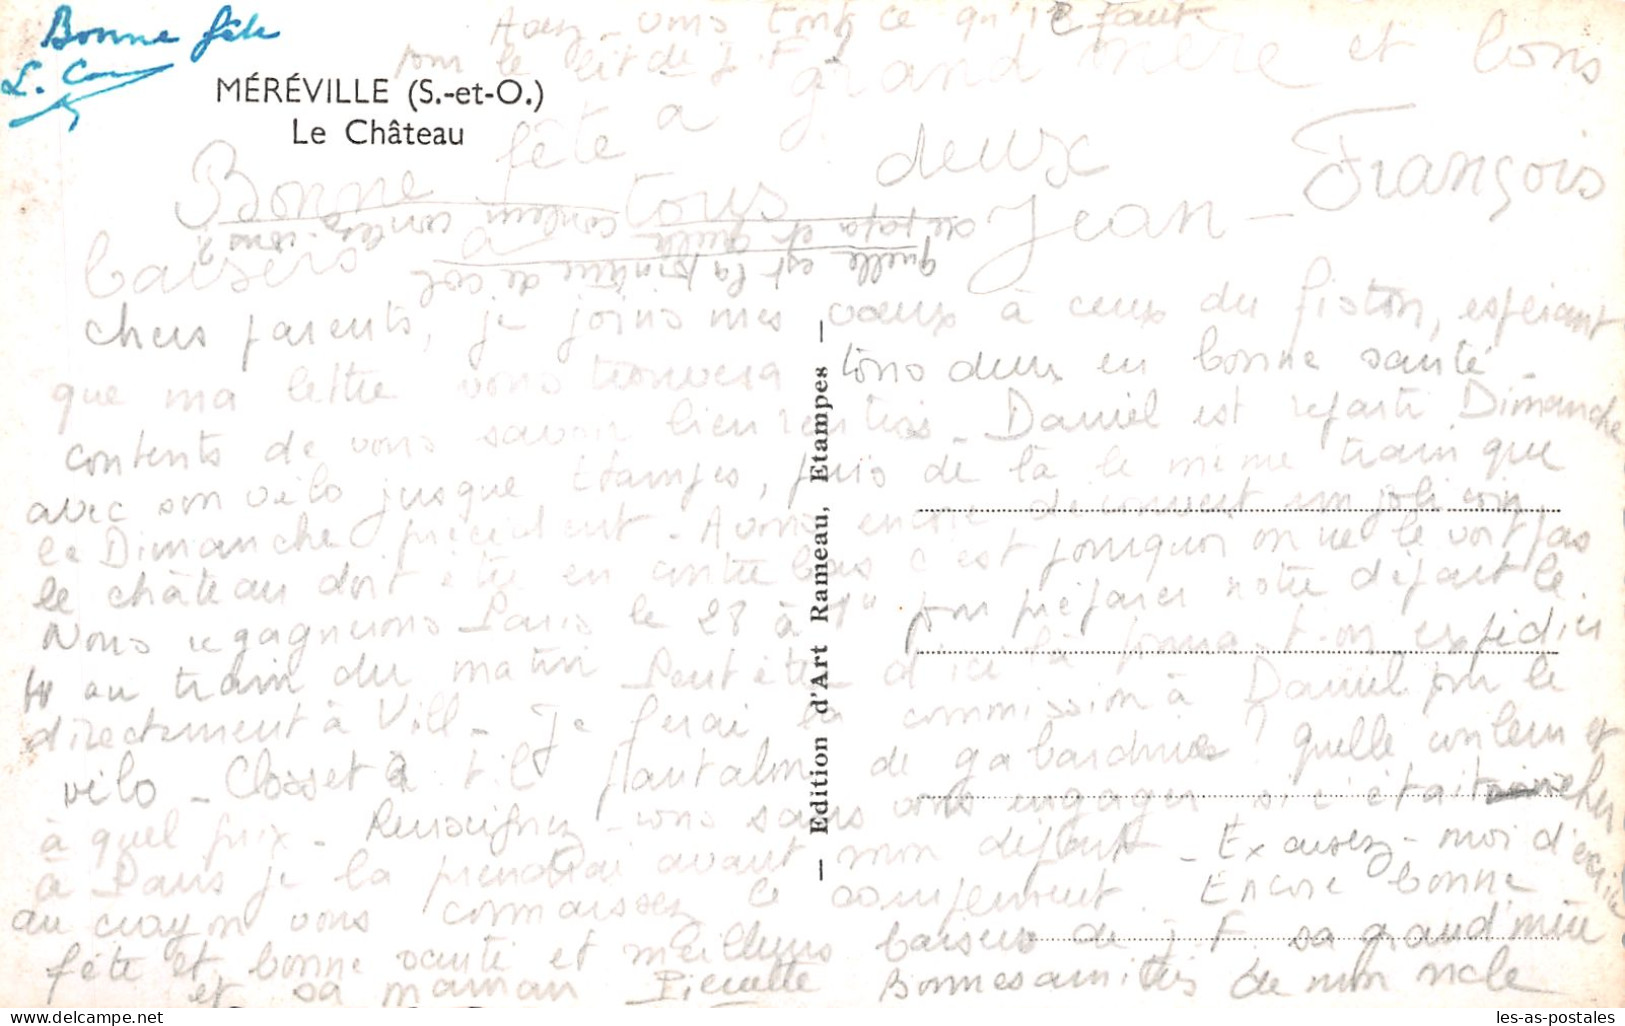 Bonne fête
L.
MÉRÉVILLE (S.-et-O.)
Le Château
Avez-vous tout ce qu'il faut
pour le lit de J. F. ?
Bonne fête à grand mère et bons
baisers à tous deux Jean-François
quelle est la pointure de col
de papa et quelle couleur voulez-vous ?
chers parents, je joins mes vœux à ceux du fiston, espérant
que ma lettre vous trouvera tous deux en bonne santé
contents de vous savoir bien rentrés - Daniel est reparti Dimanche
avec son vélo jusque Etampes, puis de là le même train que
le Dimanche précédent. Avons encore découvert un joli coin
le château doit être en contre bas c'est pourquoi on ne le voit pas
Nous regagnerons Paris le 28 à 1" pour préparer notre départ le
au train du matin Peut être d'ici là pourra-t-on expédier
directement à Vill - Je ferai la commission à Daniel pour le
vélo - Closset a t'il pantalon de gabardine ? quelle couleur et
à quel prix - Renseignez-vous sans vous engager si c'était cher
à Paris je la prendrai avant mon départ - Excusez-moi d'écrire
au crayon vous connaissez ce campement. Encore bonne
fête et bonne santé et meilleurs baisers de J. F. sa grand'mère
et sa maman Pierrette Bonnes amitiés de mon oncle
— Edition d'Art Rameau, Etampes —
les-as-postales.com